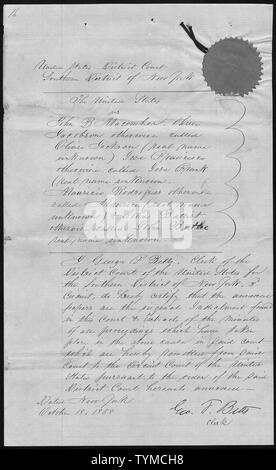 16
United States District Court
Southern District of New York
The United States
vs
John B. Macomber,
Jacobson otherwise called
Jackson (real name
unknown) Jose Francisco
otherwise called Jose Frank
(real name unknown
Mauricio Rodrigues otherwise
called
unknown) & John
otherwise called John
real name unknown
I George F. Betts, Clerk of the
District Court of the United States for
the Southern District of New York, D
do hereby certify that the annexed
papers are the original Indictment found
in this Court & Extracts of the Minutes
of all proceedings which have taken
place in the above cause in said Court
which are hereby from said
Court to the Circuit Court of the United
States pursuant to the order of the said
District Court hereunto annexed
Dated New York
October 18, 1858
Geo. F. Betts
Clerk
alamy
TYMCH8